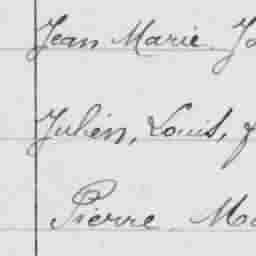 Jean Marie
Julien, Louis,
Pierre